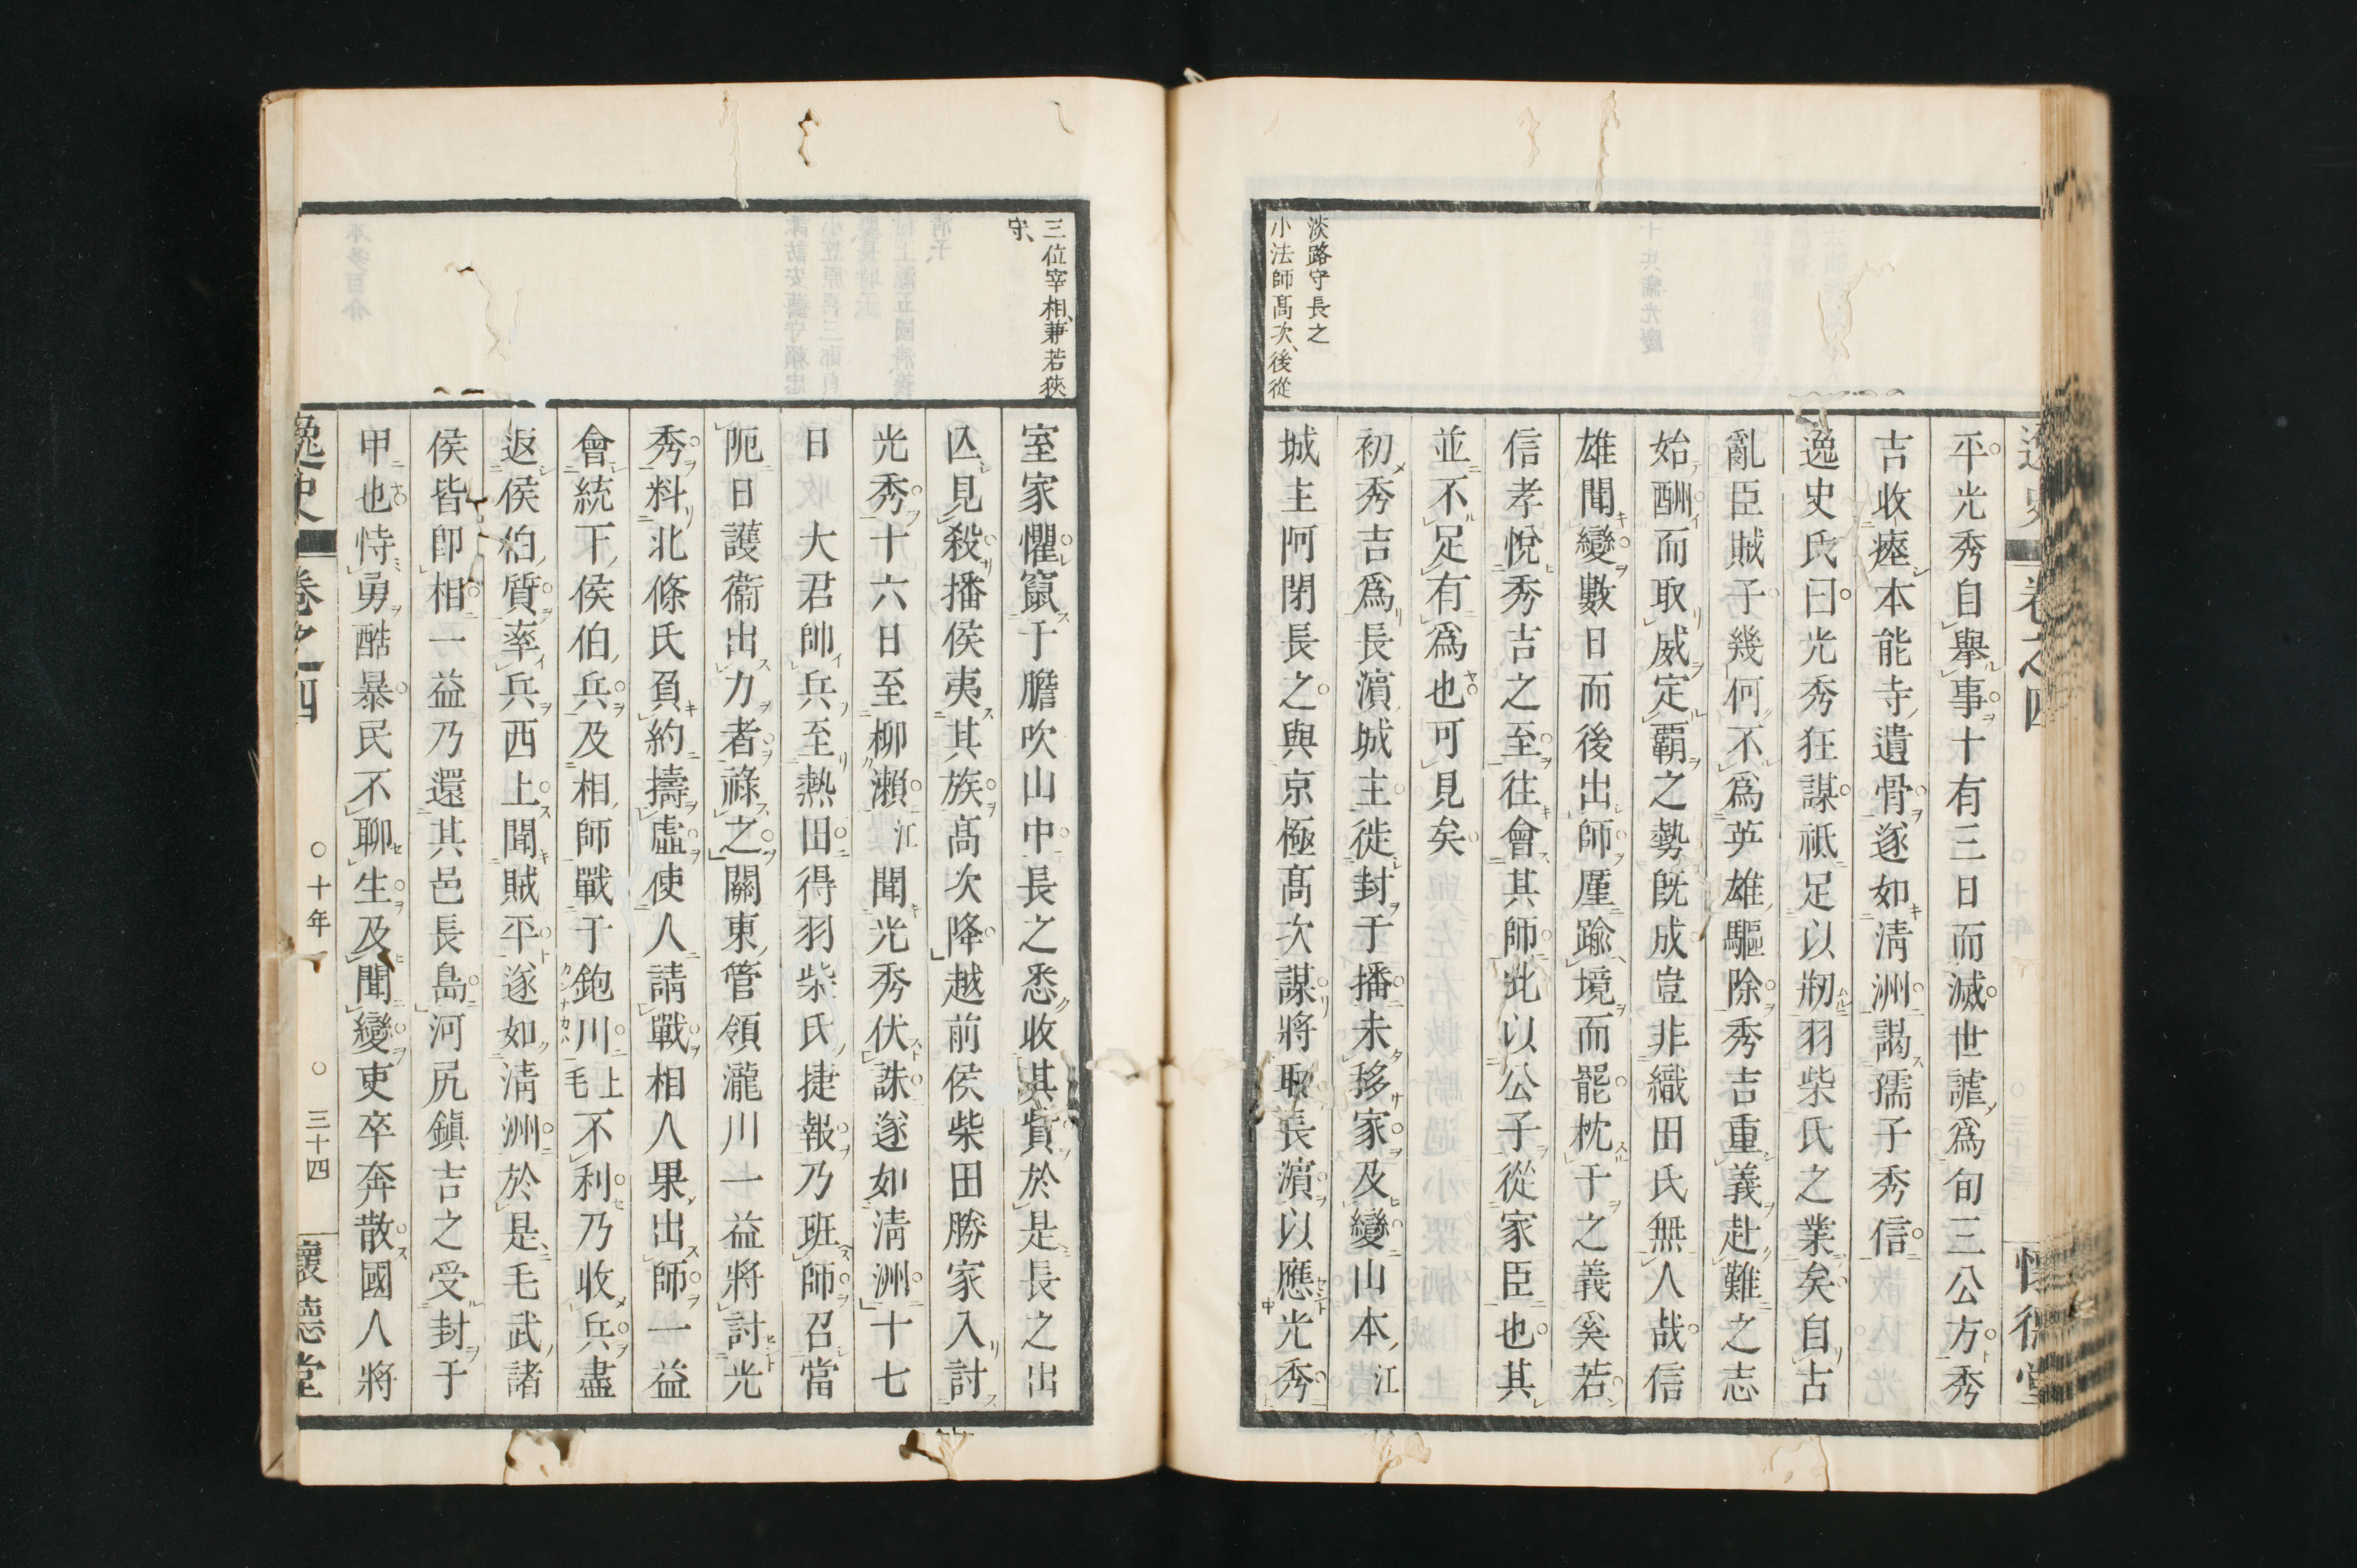 平光秀自擧事十有三日而滅世謔爲旬三公方秀
吉收瘞本能寺遺骨遂如淸洲謁孺子秀信
逸史氏曰光秀狂謀祗足以剏羽柴氏之業矣自古
亂臣賊子幾何不爲英雄驅除秀吉重義赴難之志
始酬而取威定覇之勢既成豈非織田氏無人哉信
雄聞變數日而後出師厪踰境而罷枕干之義奚若
信孝悅秀吉之至往會其師此以公子從家臣也其
並不足有爲也可見矣
初秀吉爲長濵城主徙封于播未移家及變山本江
城主阿閉長之與京極髙次謀將取長濵以應光秀
淡路守長之
小法師髙次、後從
三位宰相、兼若狹
守、
室家懼竄于膽吹山中長之悉收其貲於是長之出
亾見殺播侯夷其族髙次降越前侯柴田勝家入討
光秀十六日至柳瀨江聞光秀伏誅遂如淸洲十七
日 大君帥兵至熱田得羽柴氏捷報乃班師召當
阨日護衞出力者祿之關東管領瀧川一益將討光
秀料北條氏負約擣虛使人請戰相人果出師一益
會統下侯伯兵及相師戰于鉋川上毛不利乃收兵盡
返侯伯質率兵西上聞賊平遂如淸洲於是毛武諸
侯皆卽相一益乃還其邑長島河尻鎭吉之受封于
甲也恃勇酷暴民不聊生及聞變吏卒奔散國人將
逸史 卷之四 ○十年 ○三十四 懷德堂